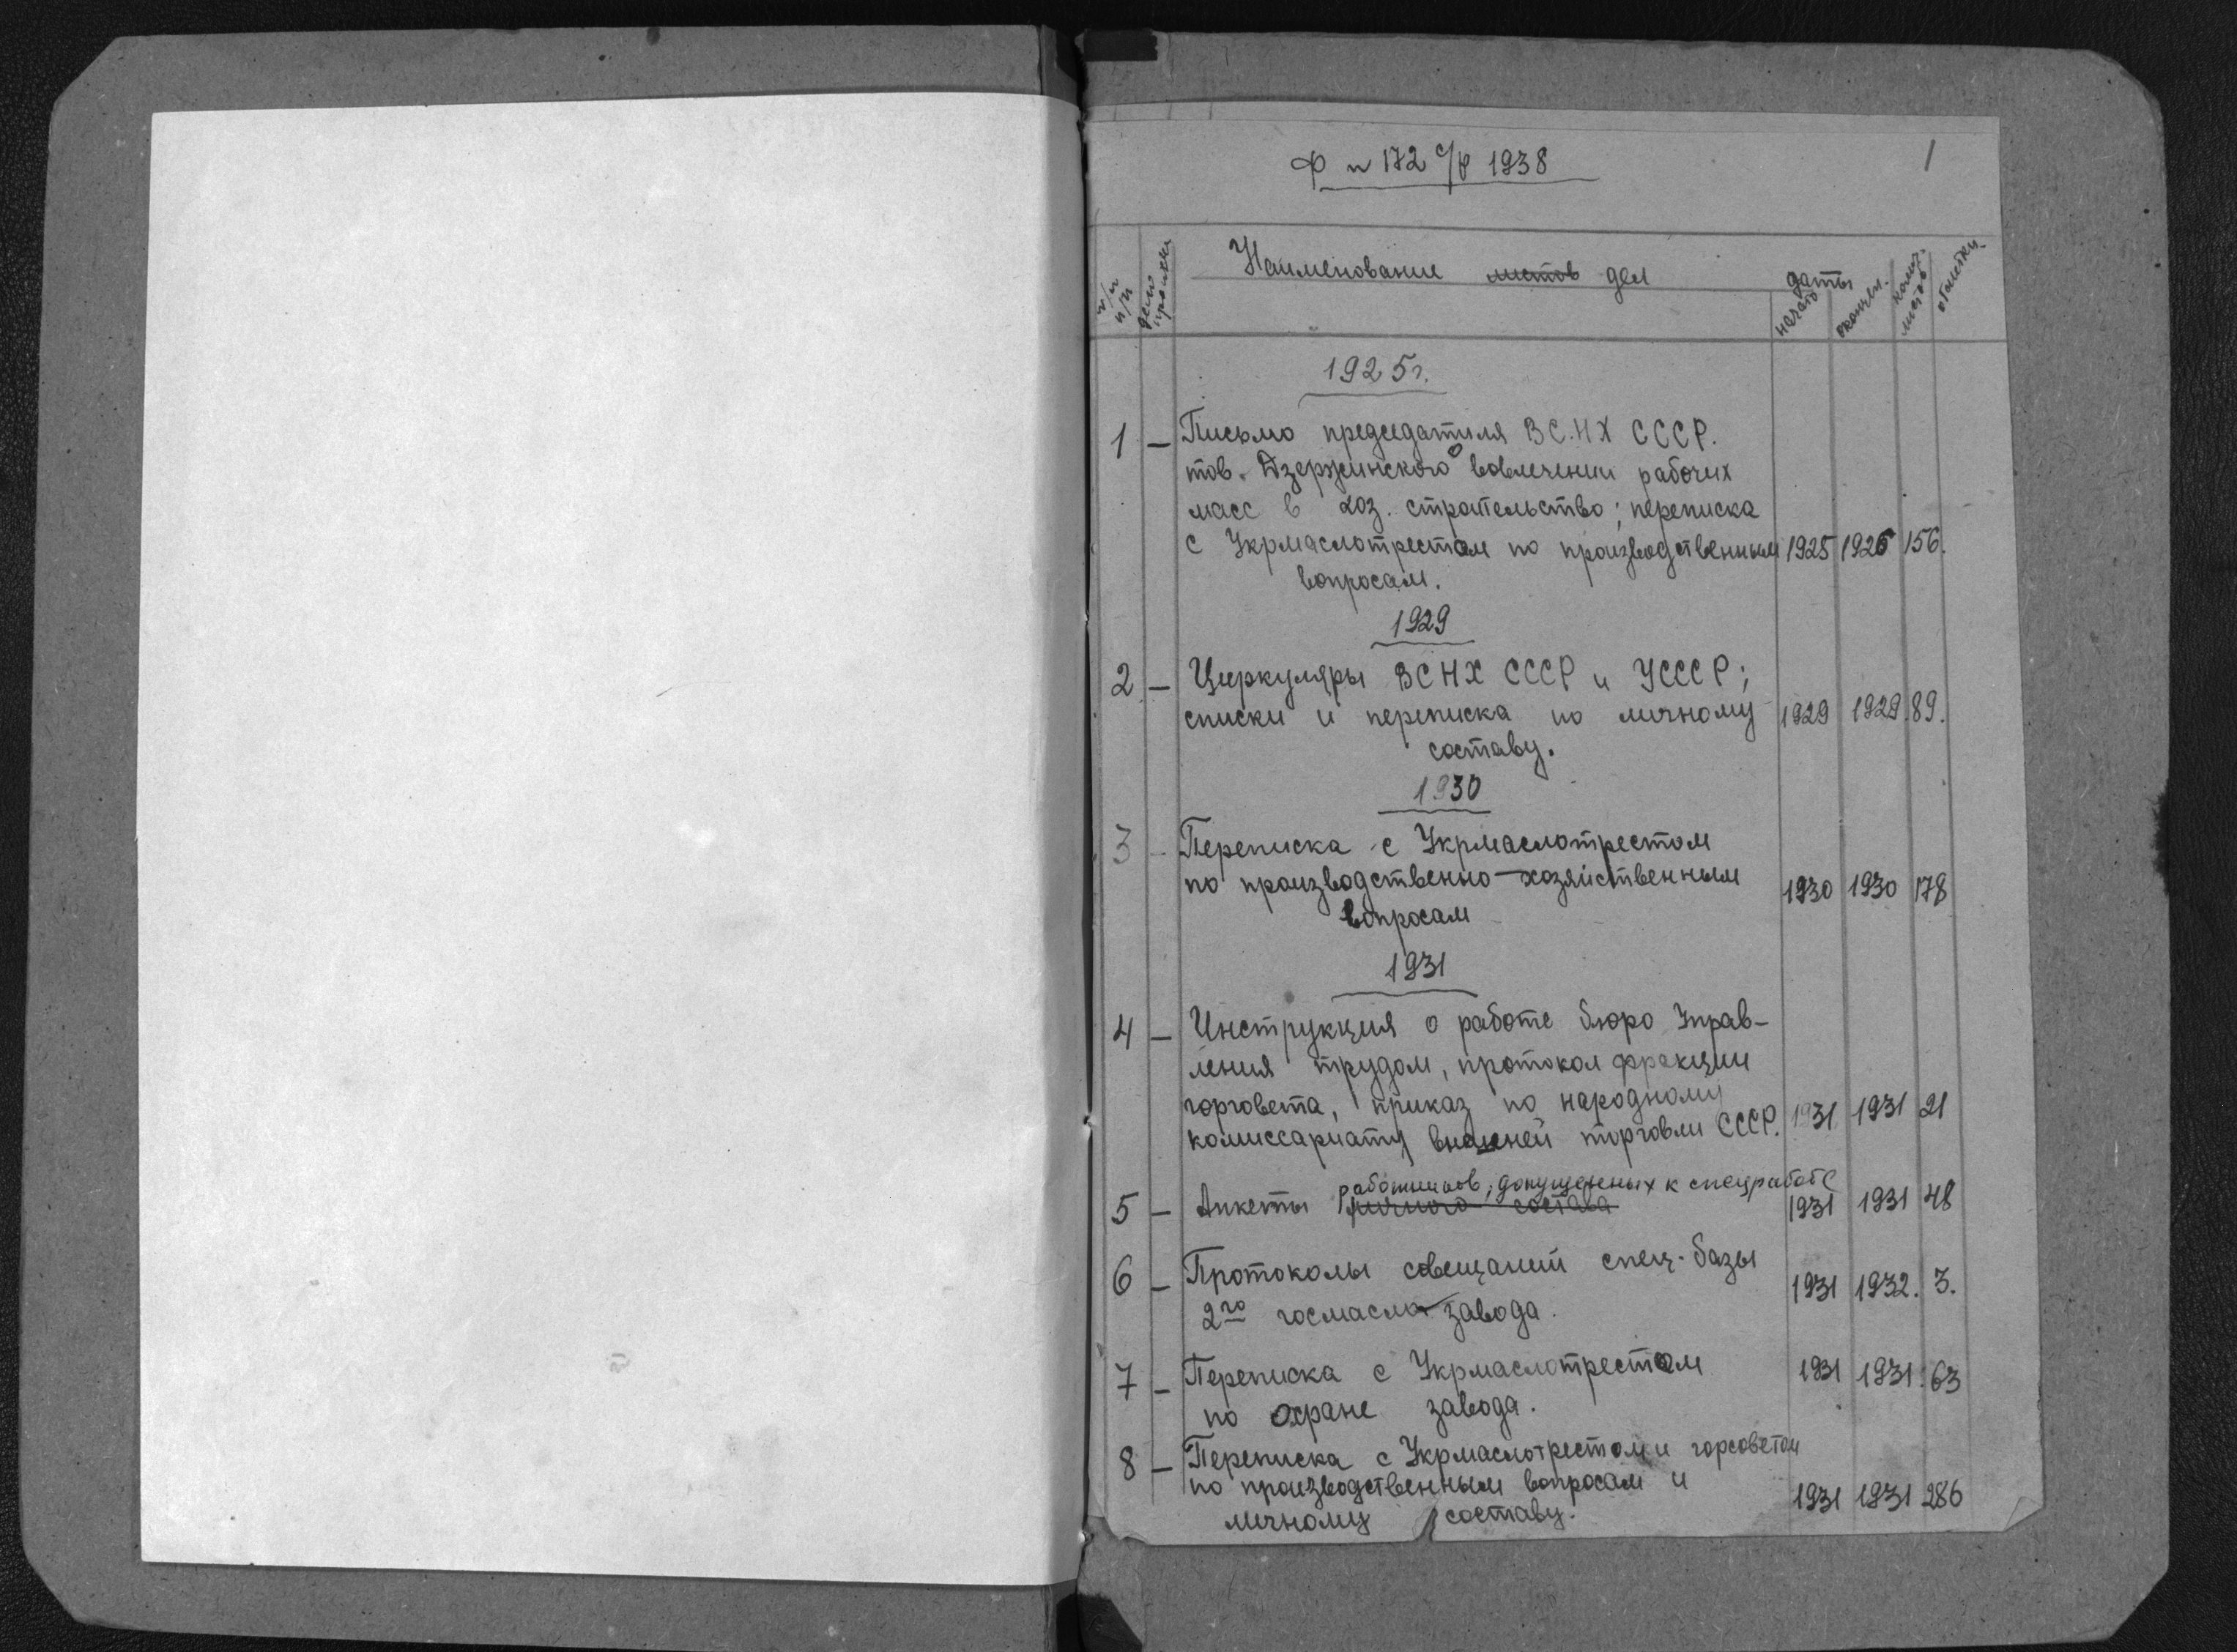 1
Ф № 172 с/р 1938
№/№ п/п
дело приказы
Наименование листов дел
даты
начало
оконч.
колич. листов
отметки
1925г.
1 – Письмо председателя ВС.НХ СССР.
тов. Дзержинского о вовлечении рабочих
масс в хоз. строительство; переписка
с Укрмаслотрестом по производственным 1925 1926 156.
вопросам.
1929
2 – Циркуляры ВСНХ СССР и УССР;
списки и переписка по личному 1929 1929. 89.
составу.
1930
3 – Переписка с Укрмаслотрестом
по производственно-хозяйственным 1930 1930 178
вопросам
1931
4 – Инструкция о работе бюро Управ-
ления трудом, протокол фракции
горсовета, приказ по народному
комиссариату внешней торговли СССР. 1931 1931 21
работников, допущенных к спецработе
5 – Анкеты личного состава 1931 1931 48
6 – Протоколы совещаний спец-базы
2го госмаслозавода. 1931 1932. 3.
7 – Переписка с Укрмаслотрестом 1931 1931. 63
по охране завода.
8 – Переписка с Укрмаслотрестом и горсоветом
по производственным вопросам и
личному составу. 1931 1931 286